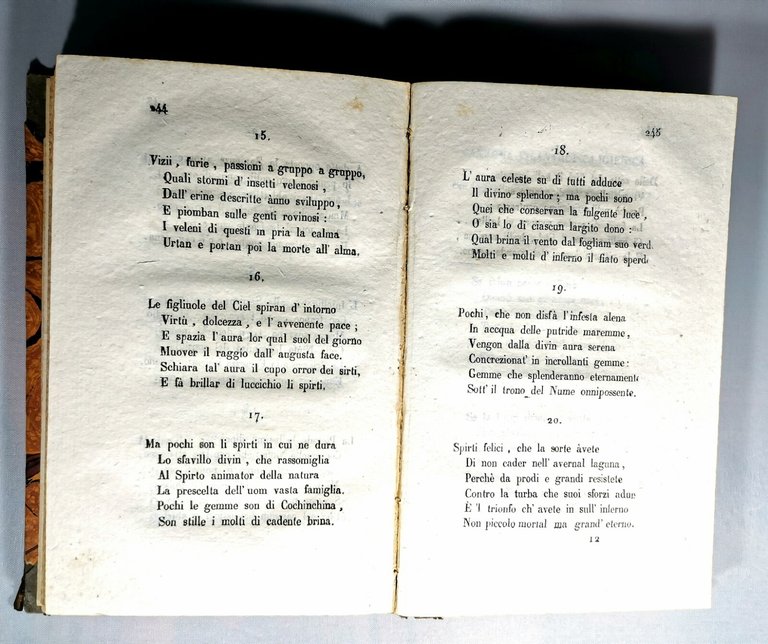 244
15.
Vizii, furie, passioni a gruppo a gruppo,
Quali stormi d' insetti velenosi,
Dall' erine descritte ànno sviluppo,
E piomban sulle genti rovinosi:
I veleni di questi in pria la calma
Urtan e portan poi la morte all' alma.
16.
Le figliuole del Ciel spiran d' intorno
Virtù, dolcezza, e l' avvenente pace;
E spazia l' aura lor qual suol del giorno
Muover il raggio dall' augusta face.
Schiara tal' aura il cupo orror dei sirti,
E fà brillar di luccichio li spirti.
17.
Ma pochi son li spirti in cui ne dura
Lo sfavillo divin, che rassomiglia
Al Spirto animator della natura
La prescelta dell' uom vasta famiglia.
Pochi le gemme son di Cochinchina,
Son stille i molti di cadente brina.
245
18.
L' aura celeste su di tutti adduce
Il divino splendor; ma pochi sono
Quei che conservan la fulgente luce,
O sia lo di ciascun largito dono:
Qual brina il vento dal fogliam suo verd
Molti e molti d' inferno il fiato sperde
19.
Pochi, che non disfà l' infesta alena
In accqua delle putride maremme,
Vengon dalla divin aura serena
Concrezionat' in incrollanti gemme:
Gemme che splenderanno eternamente
Sott' il trono del Nume onnipossente.
20.
Spirti felici, che la sorte àvete
Di non cader nell' avernal laguna,
Perchè da prodi e grandi resistete
Contro la turba che suoi sforzi adun
È 'l trionfo ch' avete in sull' inferno
Non piccolo mortal ma grand' eterno.
12